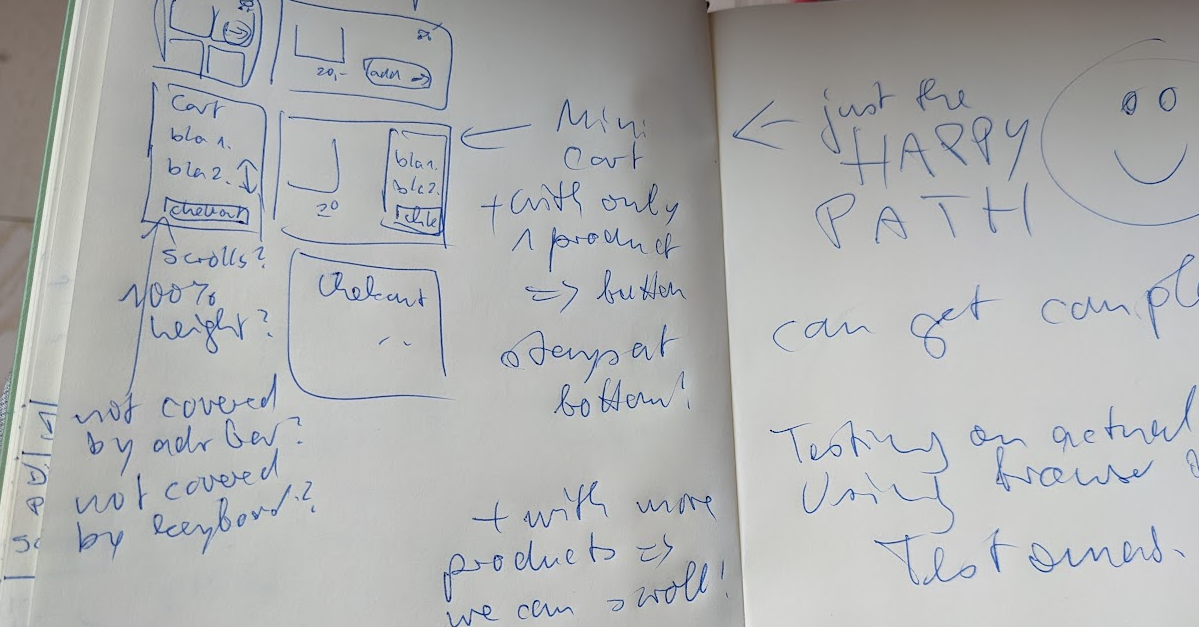 20,-
add →
Cart
bla 1.
bla 2.
checkout
scrolls?
100%
height?
not covered
by adr bar?
not covered
by keyboard?
bla 1.
bla 2.
20
Chekout
Mini
Cart
+ with only
1 product
=> button
stays at
bottom!
+ with more
products =>
we can scroll!
just the
HAPPY
PATH
can get
Testing on actual
Using browser